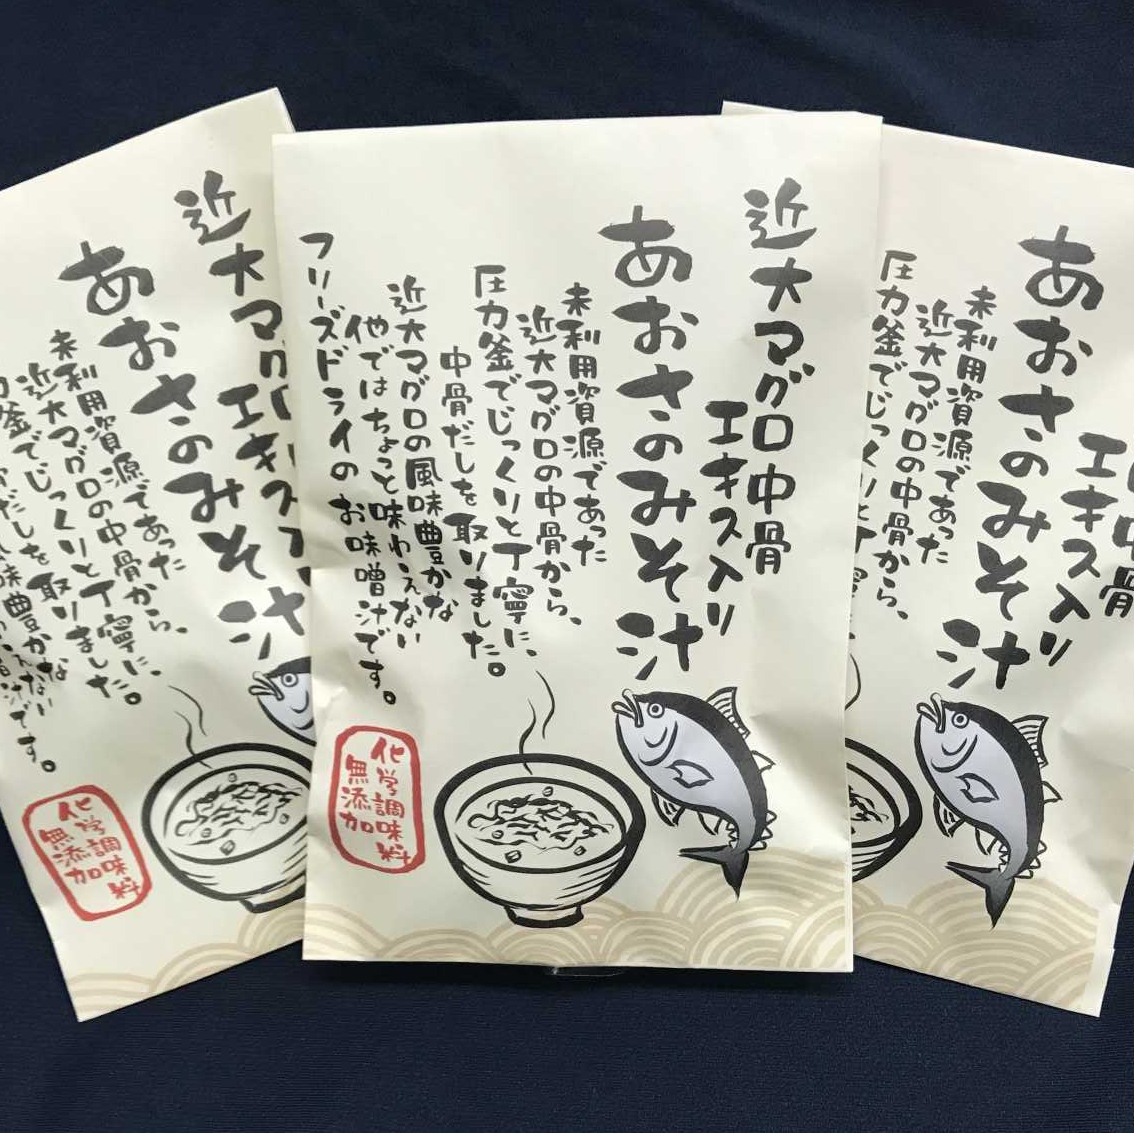 近大マグロ中骨
エキス入り
あおさのみそ汁
未利用資源であった
近大マグロの中骨から、
圧力釜でじっくりと丁寧に、
中骨だしを取りました。
近大マグロの風味豊かな
他ではちょっと味わえない
フリーズドライのお味噌汁です。
化学調味料
無添加
近大マグロ
エキス
あおさのみそ汁
未利用資源であった
近大マグロの中骨から、
釜でじっくりと丁寧に、
だしを取りました。
味豊かな
えない
噌汁です。
化学調味料
無添加
中骨
エキス入り
あおさのみそ汁
未利用資源であった
近大マグロの中骨から、
圧力釜でじっくりと丁寧